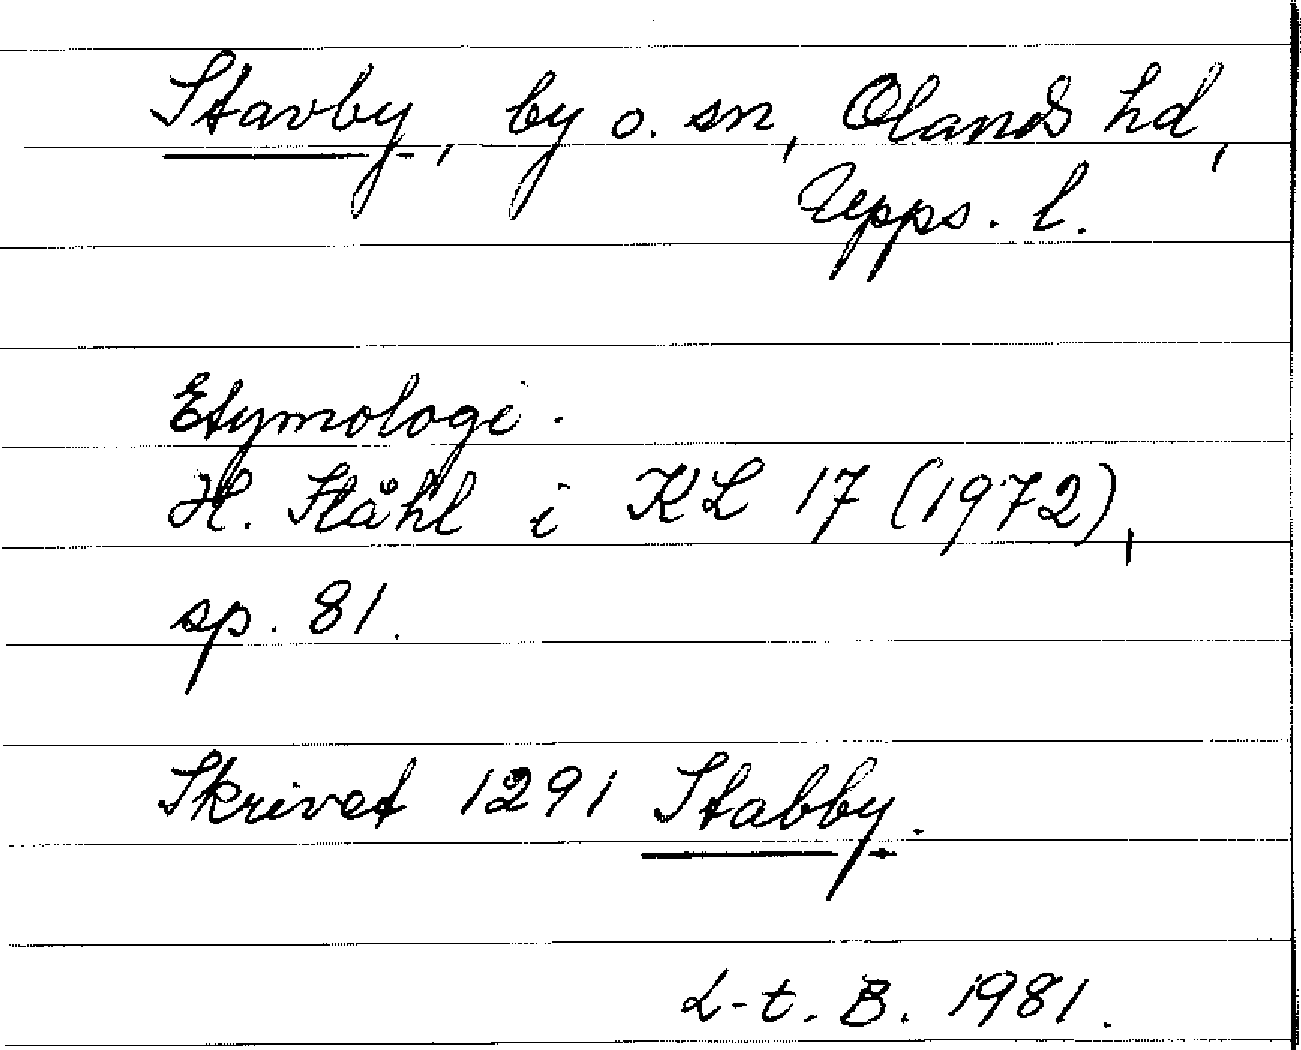 Stavby, by o. sn, Olands hd,
Upps. l.
Etymologi.
H. Ståhl i KL 17 (1972),
sp. 81.
Skrivet 1291 Stabby.
L-t. B. 1981.